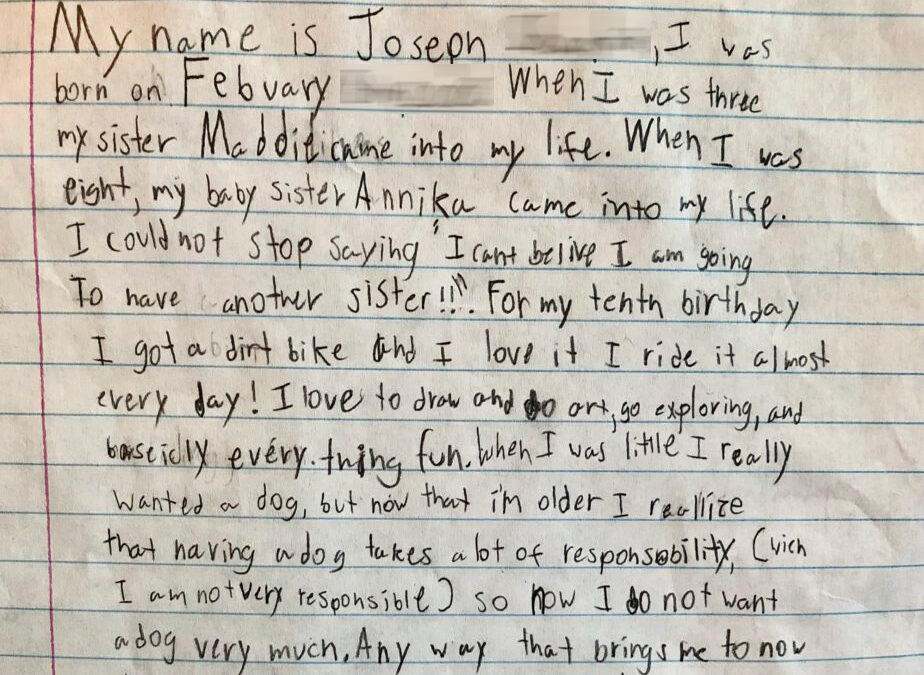 My name is Joseph , I was
born on Febuary When I was three
my sister Maddie came into my life. When I was
eight, my baby sister Annika came into my life.
I could not stop saying "I cant belive I am going
To have another sister!!!". For my tenth birthday
I got a dirt bike and I love it I ride it almost
every day! I love to draw and do art, go exploring, and
baseidly every.thing fun. When I was little I really
wanted a dog, but now that i'm older I reallize
that having a dog takes a lot of responsobility, (wich
I am not very responsible) so now I do not want
a dog very much. Any way that brings me to now